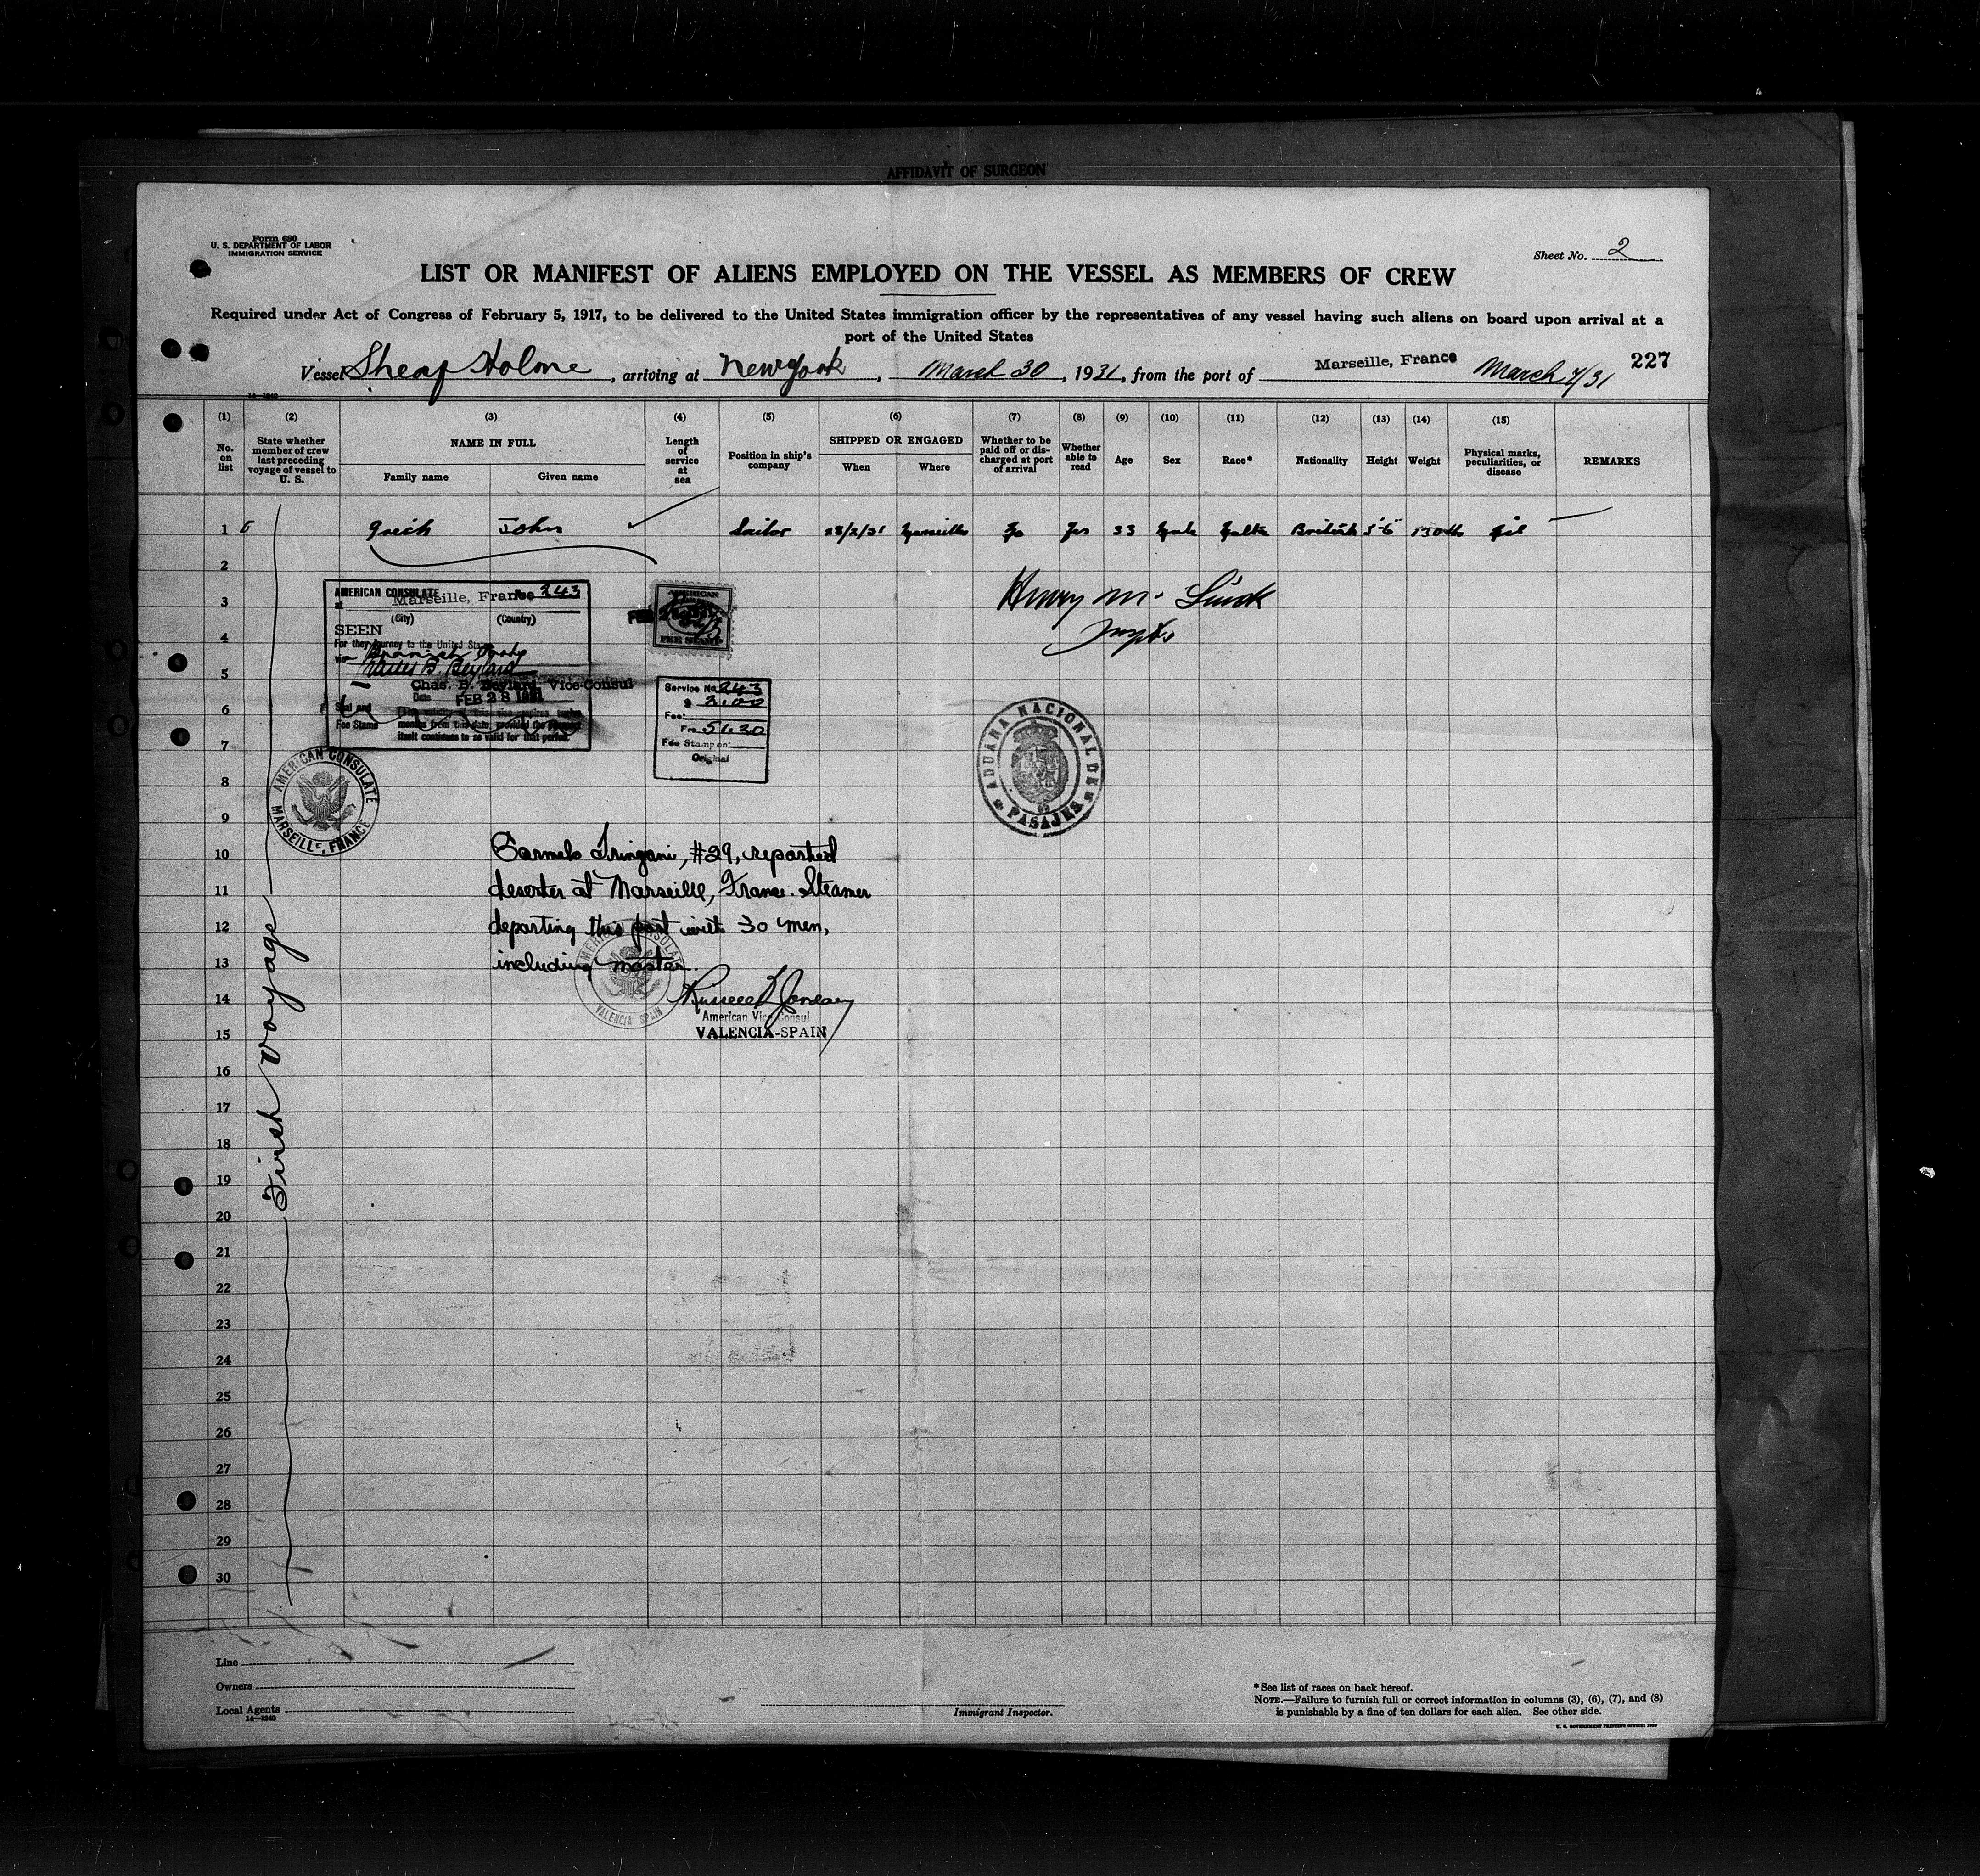 AFFIDAVIT OF SURGEON
Form 680
U. S. DEPARTMENT OF LABOR
IMMIGRATION SERVICE
Sheet No. 2
LIST OR MANIFEST OF ALIENS EMPLOYED ON THE VESSEL AS MEMBERS OF CREW
Required under Act of Congress of February 5, 1917, to be delivered to the United States immigration officer by the representatives of any vessel having such aliens on board upon arrival at a
port of the United States
Vessel Sheaf Holme, arriving at New York, March 30, 1931, from the port of Marseille, France March 4/31 227
14—1240
(1) (2) (3) (4) (5) (6) (7) (8) (9) (10) (11) (12) (13) (14) (15)
No. on list
State whether member of crew last preceding voyage of vessel to U. S.
NAME IN FULL
Family name Given name
Length of service at sea
Position in ship's company
SHIPPED OR ENGAGED
When Where
Whether to be paid off or discharged at port of arrival
Whether able to read
Age
Sex
Race*
Nationality
Height
Weight
Physical marks, peculiarities, or disease
REMARKS
1 Grech John Sailor 28/2/31 Marseille No Yes 33 Male Malta British 5'6" 130 lbs Nil
2
3
4
5
6
7
8
9
10
11
12
13
14
15
16
17
18
19
20
21
22
23
24
25
26
27
28
29
30
First voyage
AMERICAN CONSULATE
at Marseille, France No 243
(City) (Country)
SEEN
For the journey to the United States
via Spanish Ports
Charles B. Beylard
Chas. B. Beylard Vice-Consul
Date FEB 28 1931
Seal and
Fee Stamp
months from this date, provided the
itself continues to be valid for that period.
AMERICAN
FEE STAMP
Service No. 243
$ 2.00
Fee:
Frs 51.20
Fee Stamp on:
Original
AMERICAN CONSULATE
MARSEILLE, FRANCE
Henry M.
ADUANA NACIONAL DE
PASAJES
Carmelo Tringani, #29, reported
deserter at Marseille, France. Steamer
departing this port with 30 men,
including master.
AMERICAN CONSULATE
VALENCIA SPAIN
American Vice Consul
VALENCIA-SPAIN
Line
Owners
Local Agents
14—1240
Immigrant Inspector.
*See list of races on back hereof.
NOTE.—Failure to furnish full or correct information in columns (3), (6), (7), and (8)
is punishable by a fine of ten dollars for each alien. See other side.